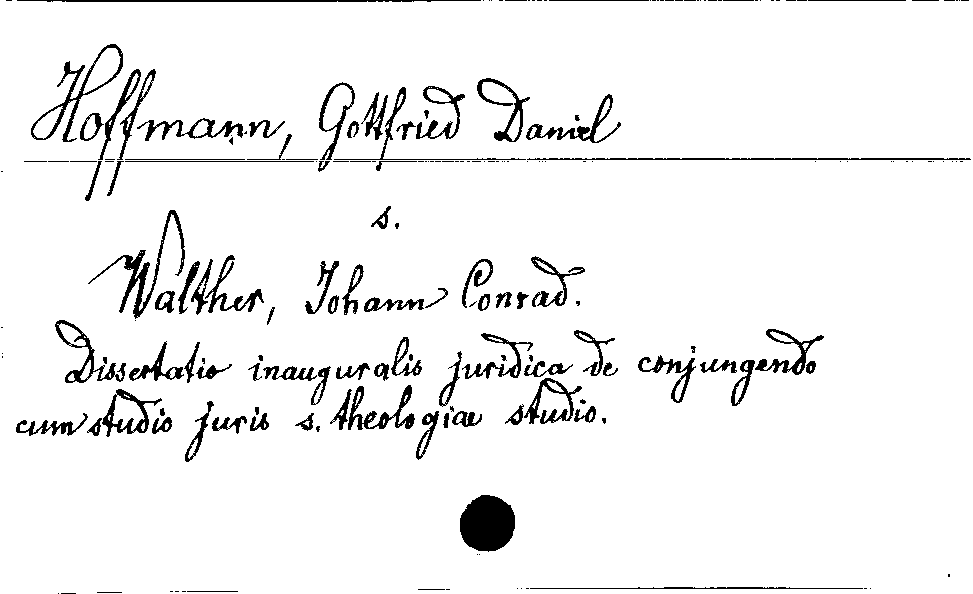 Hoffmann, Gottfried Daniel
s.
Walther, Johann Conrad.
Dissertatio inauguralis juridica de conjungendo
cum studio juris s. theologiae studio.